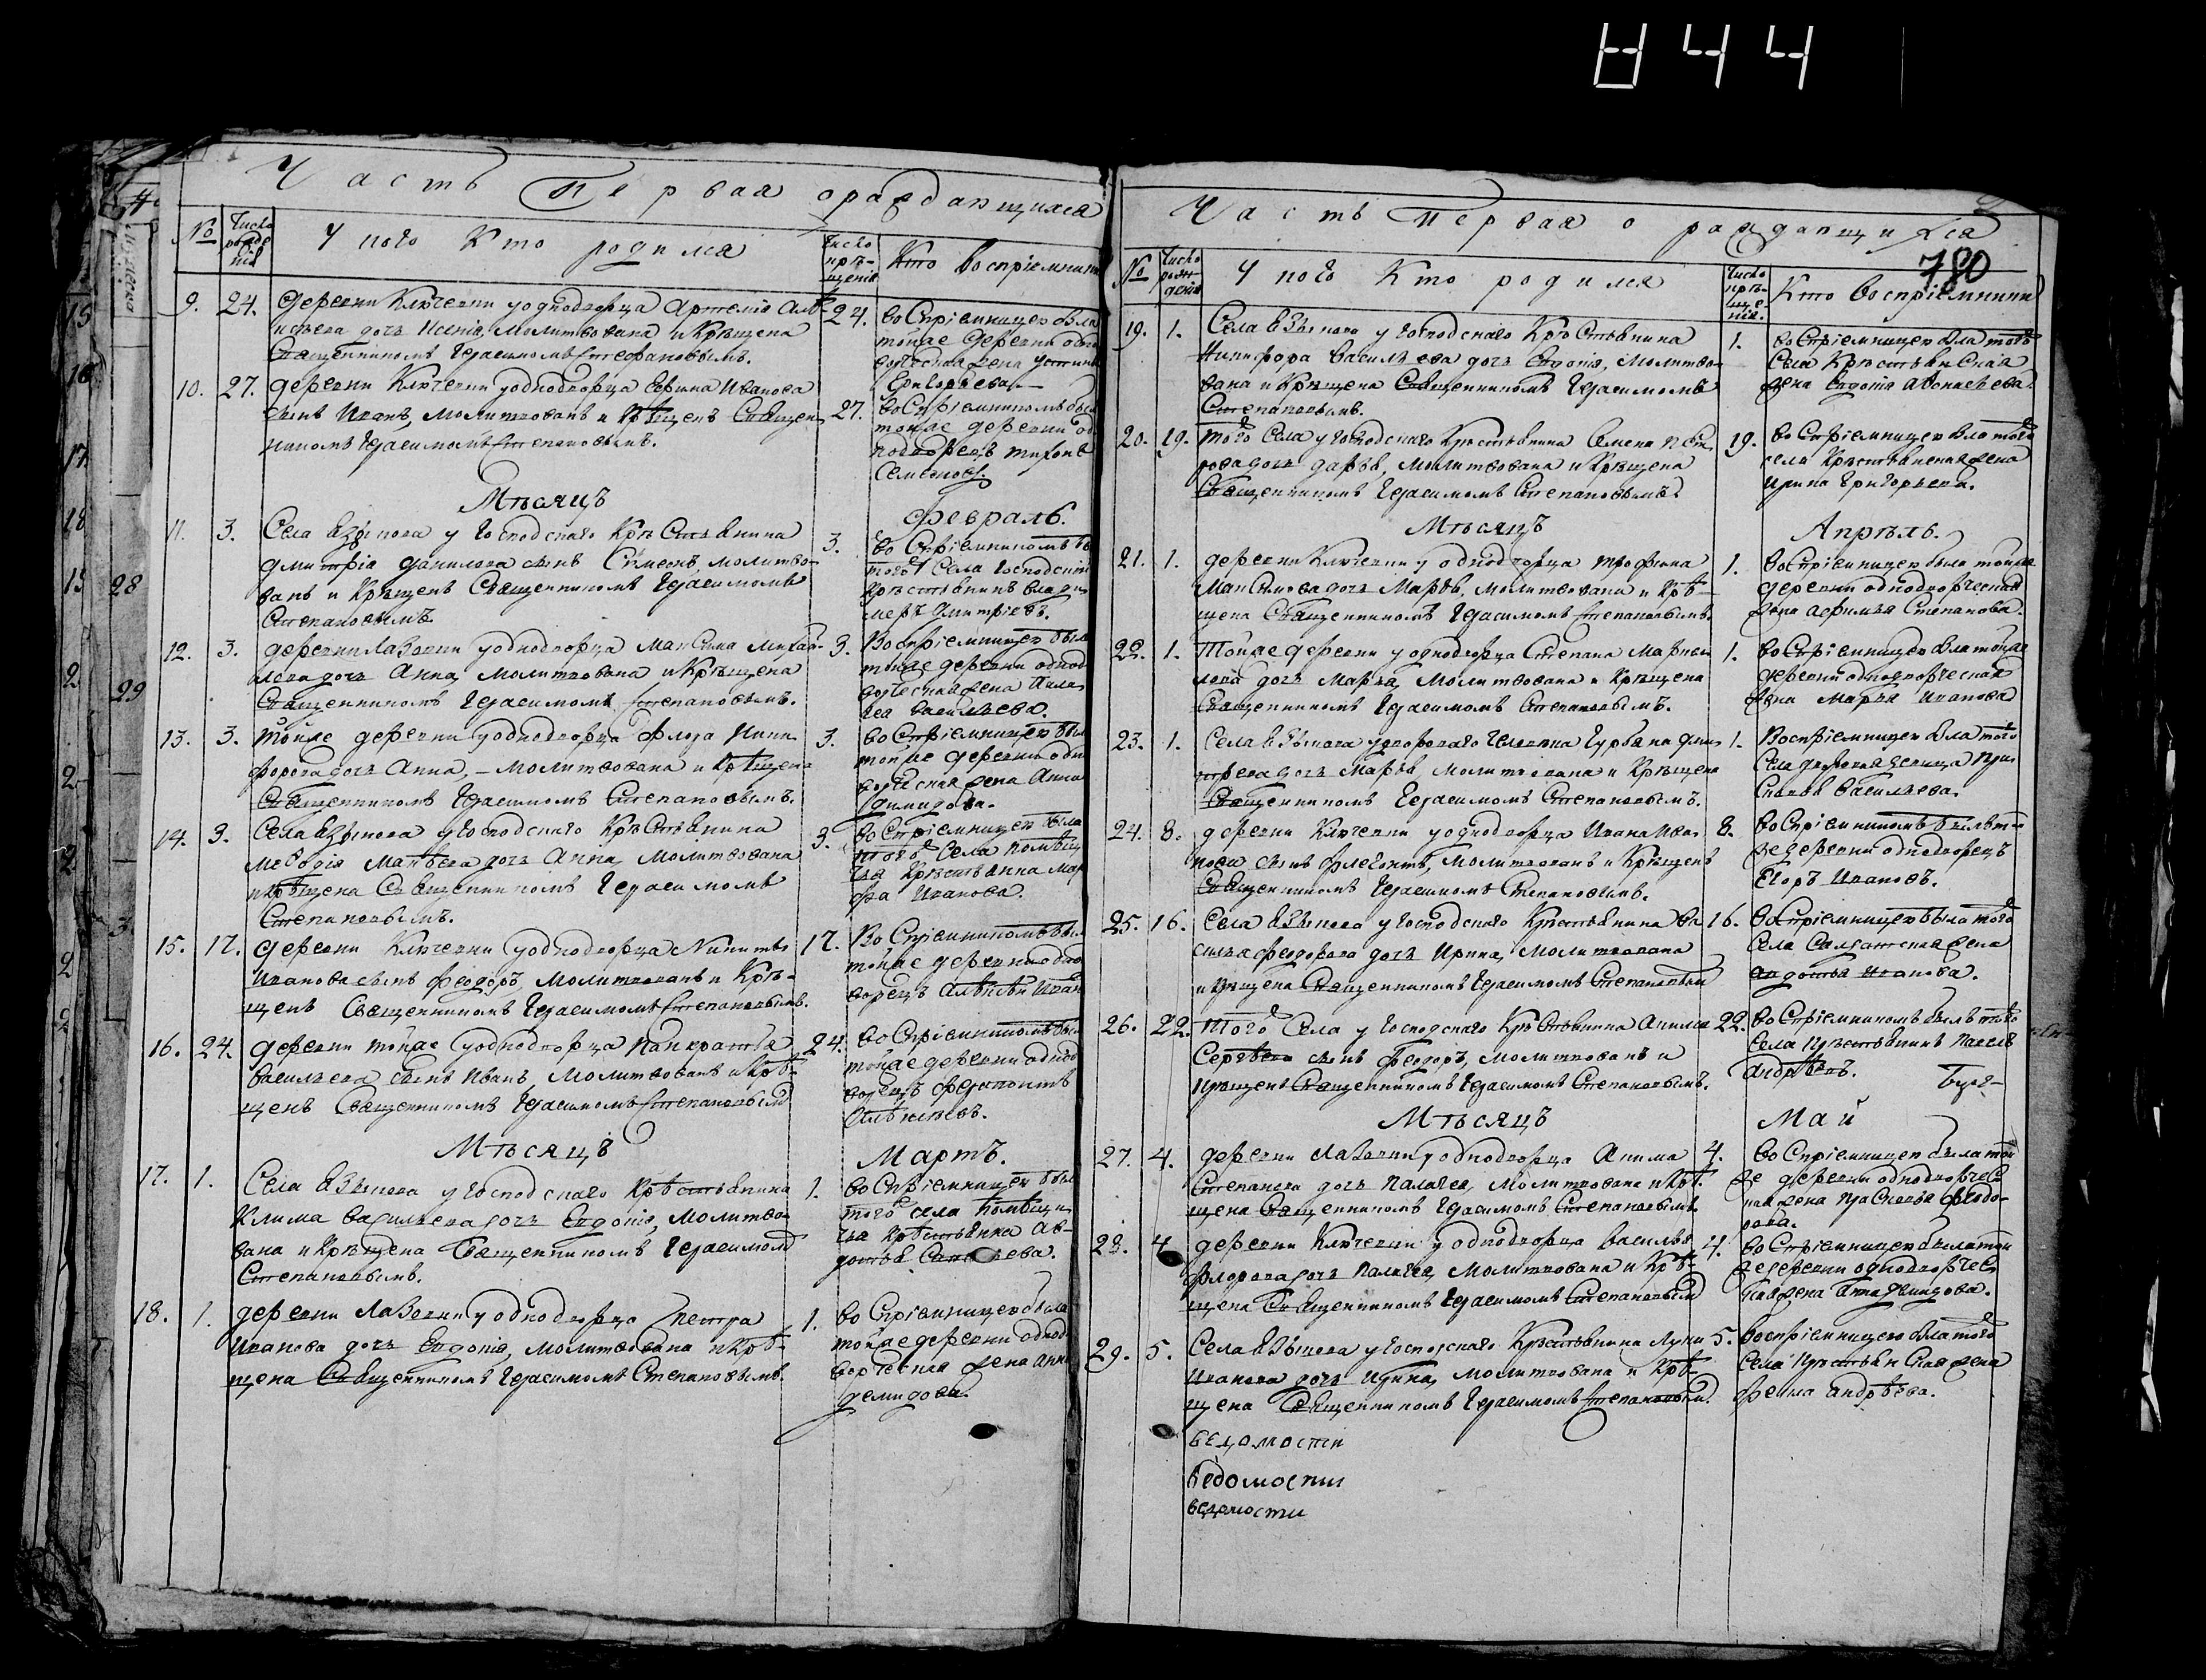 844
Часть Первая ораждающихся
№
Число рождения
У ково Кто родился
Число крещения
Кто Восприемники
9. 24. деревни Ключевки у однодворца Артемия
дочь Ксения, молитвована и Крещена
Священником Герасимомъ Стефановымъ.
24. восприемницею была
тойже деревни одно
женна Устинья
Григорьева.
10. 27. деревни Ключевки у однодворца Ефима Иванова
сынъ Иванъ, молитвованъ и Крѣщенъ Священ
никомъ Герасимомъ Степановымъ.
27. воспріемникомъ былъ
тойже деревни од
нодворецъ Тифонъ
Семеновъ.
Мѣсяцъ
Февраль.
11. 3. Села Языкова у господскаго Крѣстьянина
Дмитрія Данилова сынъ Симеонъ, молитво
ванъ и Крѣщенъ Священникомъ Герасимомъ
Степановымъ.
3. воспріемникомъ бы
того Села господский
крѣстьянинъ Влади
меръ Дмитріевъ.
12. 3. деревни Лазовки у однодворца Максима Михай
лова дочь Анна, молитвована и Крѣщена
Священникомъ Герасимомъ Степановымъ.
3. Воспріемницею была
тойже деревни однод
ворческая жена Пела
гея Васильева.
13. 3. тойже деревни у однодворца Флора Ники
форова дочь Анна, молитвована и Крѣщена
Священникомъ Герасимомъ Степановымъ.
3. воспріемницею был
тойже деревни одно
ворческая жена Анна
Димидова.
14. 3. Села Языкова у господскаго Крѣстьянина
Меѳодія Матвѣева дочь Анна, молитвована
и крѣщена Священникомъ Герасимомъ
Степановымъ.
3. воспріемницею была
того Села помѣщи
чья крѣстьянка Мар
фа Иванова.
15. 17. деревни Ключевки у однодворца Никиты
Иванова сынъ Феодоръ, молитвованъ и Крѣ-
щенъ Священникомъ Герасимомъ Степановымъ.
17. Воспріемникомъ был
тойже деревни одно
ворецъ Алѣксѣй Иван
16. 24. деревни тойже у однодворца Панкратья
Васильева сынъ Иванъ, молитвованъ и Крѣ-
щенъ Священникомъ Герасимомъ Степановым
24. воспріемникомъ был
тойже деревни одно
ворецъ Ферапонтъ
Мѣсяцъ
Мартъ.
17. 1. Села Языкова у господскаго Крѣстьянина
Клима Васильева дочь Евдокія, молитво
вана и Крѣщена Священникомъ Герасимомъ
Степановымъ.
1. воспріемницею был
того села помѣщи
чья крѣстьянка Ав-
дотья
18. 1. деревни Лазовки у однодворца Петра
Иванова дочь Евдокія, молитвована и Крѣ-
щена Священникомъ Герасимомъ Степановымъ.
1. воспріемницею была
тойже деревни однод
ворческая жена Анна
Демидова.
Часть Первая о раждающихся
780
№
Число рождения
У ково Кто родился
Число крѣщенія.
Кто воспріемники
19. 1. Села Языкова у господскаго Крѣстьянина
Никифора Васильева дочь Евдокія, молитво
вана и Крѣщена Священникомъ Герасимомъ
Степановымъ.
1. воспріемницею была того
Села Крѣстьянская
жена Евдокія Афонасьева.
20. 19. того Села у господскаго Крѣстьянина Семена
дочь Дарья, молитвована и Крѣщена
Священникомъ Герасимомъ Степановымъ.
19. воспріемницею была того
села Крѣстьянская жена
Ирина Григорьева.
Мѣсяцъ
Апрѣль.
21. 1. деревни Ключевки у однодворца Трофима
Максимова дочь Марья, молитвована и Крѣ-
щена Священникомъ Герасимомъ Степановымъ.
1. воспріемницею была тойже
деревни однодворческая
жена Афимья Степанова.
22. 1. Тойже деревни у однодворца Степана
дочь Марья, молитвована и Крѣщена
Священникомъ Герасимомъ Степановымъ.
1. воспріемницею была тойже
деревни однодворческая
жена Марья Иванова
23. 1. Села Языкова у двороваго человека Гурьяна Дми
трева дочь Марья, молитвована и Крѣщена
Священникомъ Герасимомъ Степановымъ.
1. Воспріемницею была того
Села дворовая девица Пра
сковья Васильева.
24. 8. деревни Ключевки у однодворца Ивана Ива
нова сынъ Флегонтъ, молитвованъ и Крѣщенъ
Священникомъ Герасимомъ Степановымъ.
8. воспріемникомъ былъ той
же деревни однодворецъ
Егоръ Ивановъ.
25. 16. Села Языкова у господскаго Крѣстьянина Ва
силья Феодорова дочь Ирина, молитвована
и крѣщена Священникомъ Герасимомъ Степановым
16. воспріемницею была того
Села Салдатская жена
Авдотья Иванова.
26. 22. того Села у господскаго Крѣстьянина
Сергѣева сынъ Феодоръ, молитвованъ и
крѣщенъ Священникомъ Герасимомъ Степановымъ.
22. воспріемникомъ былъ того
села крѣстьянинъ Павелъ
Андрѣевъ.
Мѣсяцъ
Май
27. 4. деревни Лазовки у однодворца Акима
Степанова дочь Палагея, молитвована и Крѣ-
щена Священникомъ Герасимомъ Степановымъ.
4. воспріемницею была той
же деревни однодворчес
кая жена Прасковья Федо-
рова.
28. 4. деревни Ключевки у однодворца Василья
Флорова дочь Палагея, молитвована и Крѣ-
щена Священникомъ Герасимомъ Степановым
4. воспріемницею была той
же деревни однодворчес
кая жена Анна Демидова.
29. 5. Села Языкова у господскаго Крѣстьянина Луки
Иванова дочь Ирина, молитвована и Крѣ-
щена Священникомъ Герасимомъ Степановым.
5. воспріемницею была того
Села крѣстьянская жена
Фекла Андрѣева.
ведомости
Ведомости
ведомости